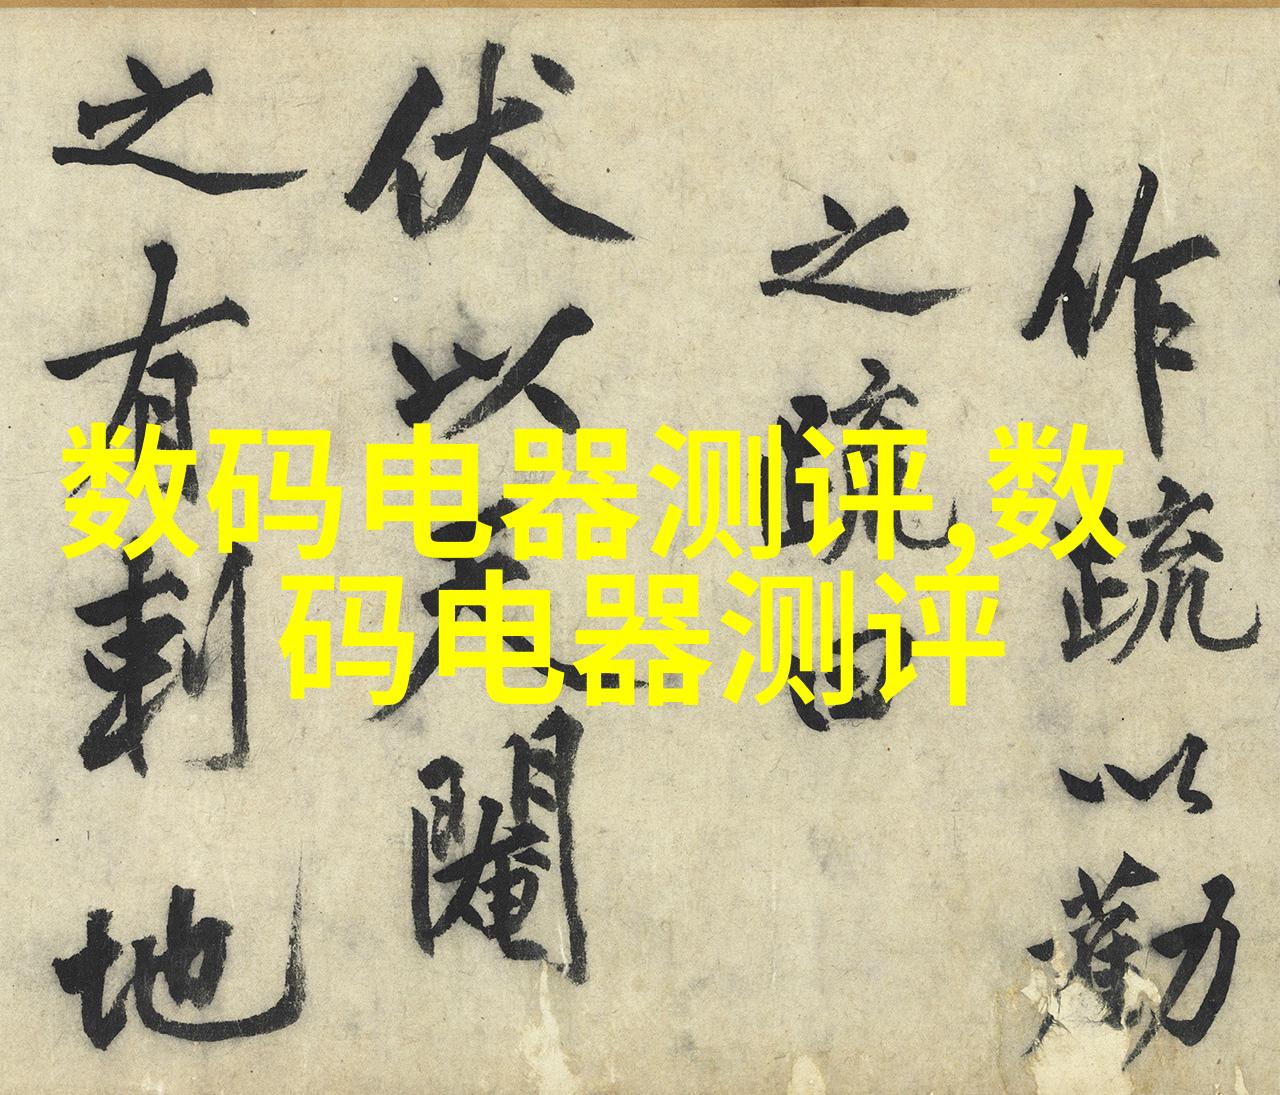 作疏以勸
之疏曰
伏以天閹
之有刺地
数码电器测评,数
码电器测评